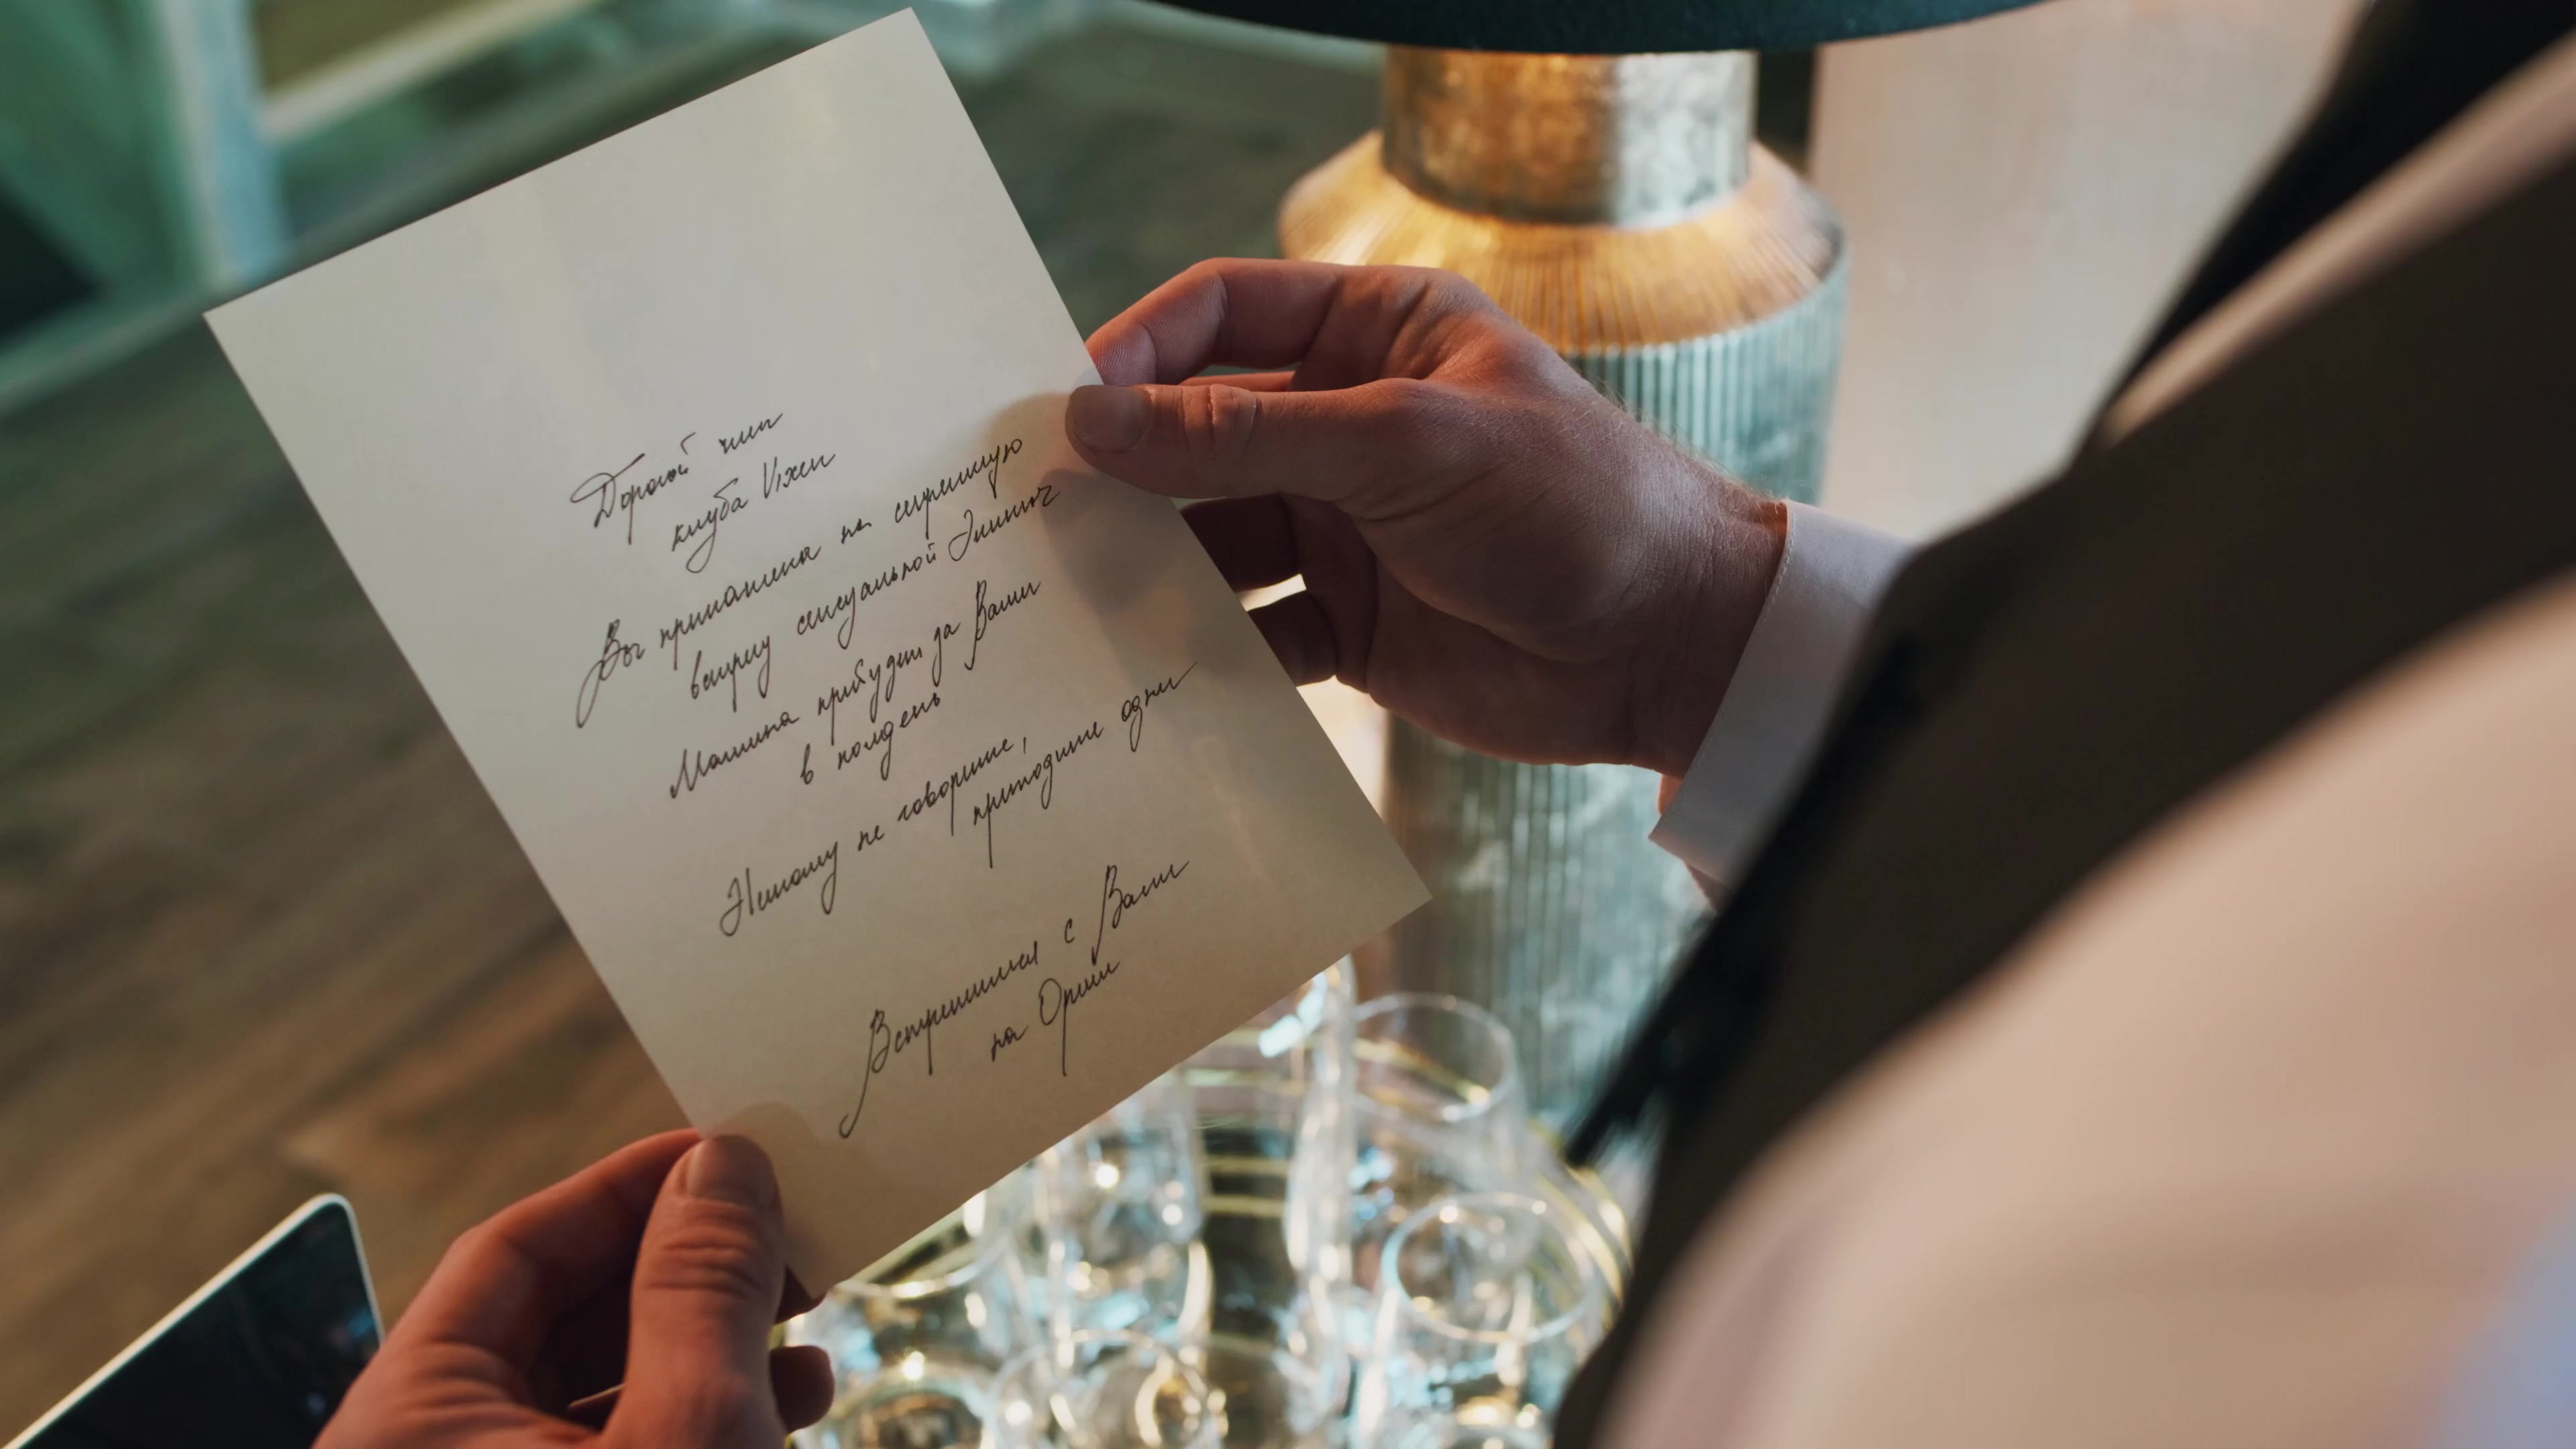 Дорогой член
клуба Vixen
Вы приглашены на секретную
встречу сексуальной Элиты
Машина прибудет за Вами
в полдень
Никому не говорите,
приходите одни
Встретимся с Вами
на Оргии